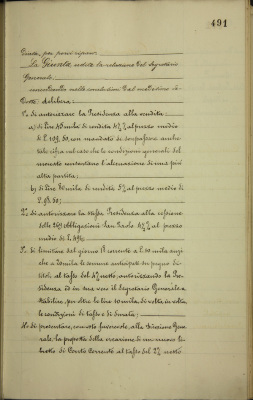 491
Giunta, per provvigioni.
La Giunta, udita la relazione del Segretario
Generale,
consentendo nelle conclusioni dal medesimo
delibera:
1º di autorizzare la Presidenza alla vendita:
a) di Lire mila di rendita 4½ % al prezzo medio
di L. 109,50, con mandato di sorpassare anche
tale cifra nel caso che le condizioni generali del
mercato consentano l'alienazione di una più
alta partita;
b) di Lire mila di rendita 5% al prezzo medio di
L. 98;
2º di autorizzare la stessa Presidenza alla cessione
delle Obbligazioni San Paolo al prezzo
medio di L.
3º di limitare dal giorno corrente a L. 10 mila anzi
che a 20 mila le somme anticipate su pegno di
titoli al tasso del 4% netto, autorizzando la Pre-
sidenza ed in sua vece il Segretario Generale a
stabilire, per oltre le lire 10 mila di volta in volta,
le condizioni di tasso e di durata;
4º di presentare, con voto favorevole, alla Direzione Gene-
rale, la proposta della creazione di un nuovo li-
bretto di Conto Corrente al tasso del 2% netto